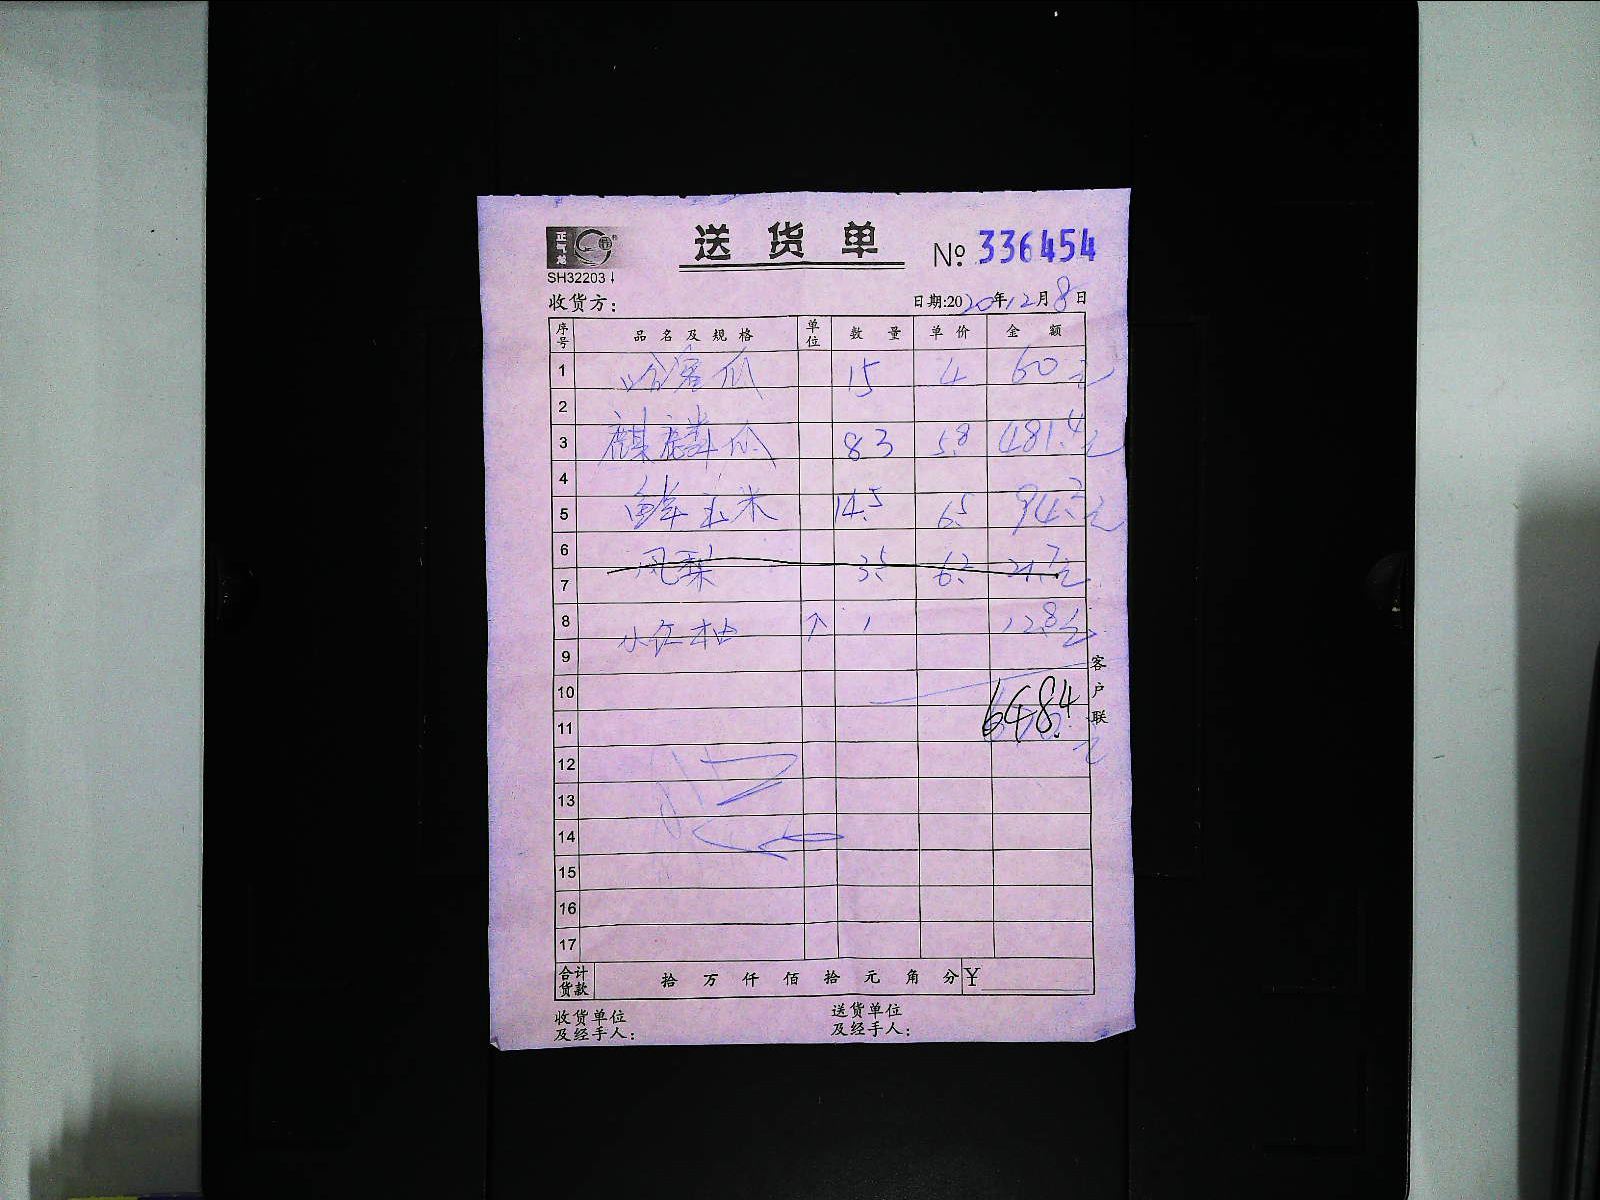 正气龙
送货单 № 336454
SH32203
收货方： 日期:2020年12月8日
序号 品名及规格 单位 数量 单价 金额
1 哈蜜瓜 15 4 60元
2
3 麒麟瓜 83 5.8 481.4元
4
5 鲜玉米 14.5 6.5 94.2元
6 凤梨 3.5 6.2 21.7元
7
8 小红柚 个 1 12.8元
9
10
11 648.4
12
13
14
15
16
17
客户联
合计货款 拾 万 仟 佰 拾 元 角 分 ¥
收货单位 送货单位
及经手人： 及经手人：